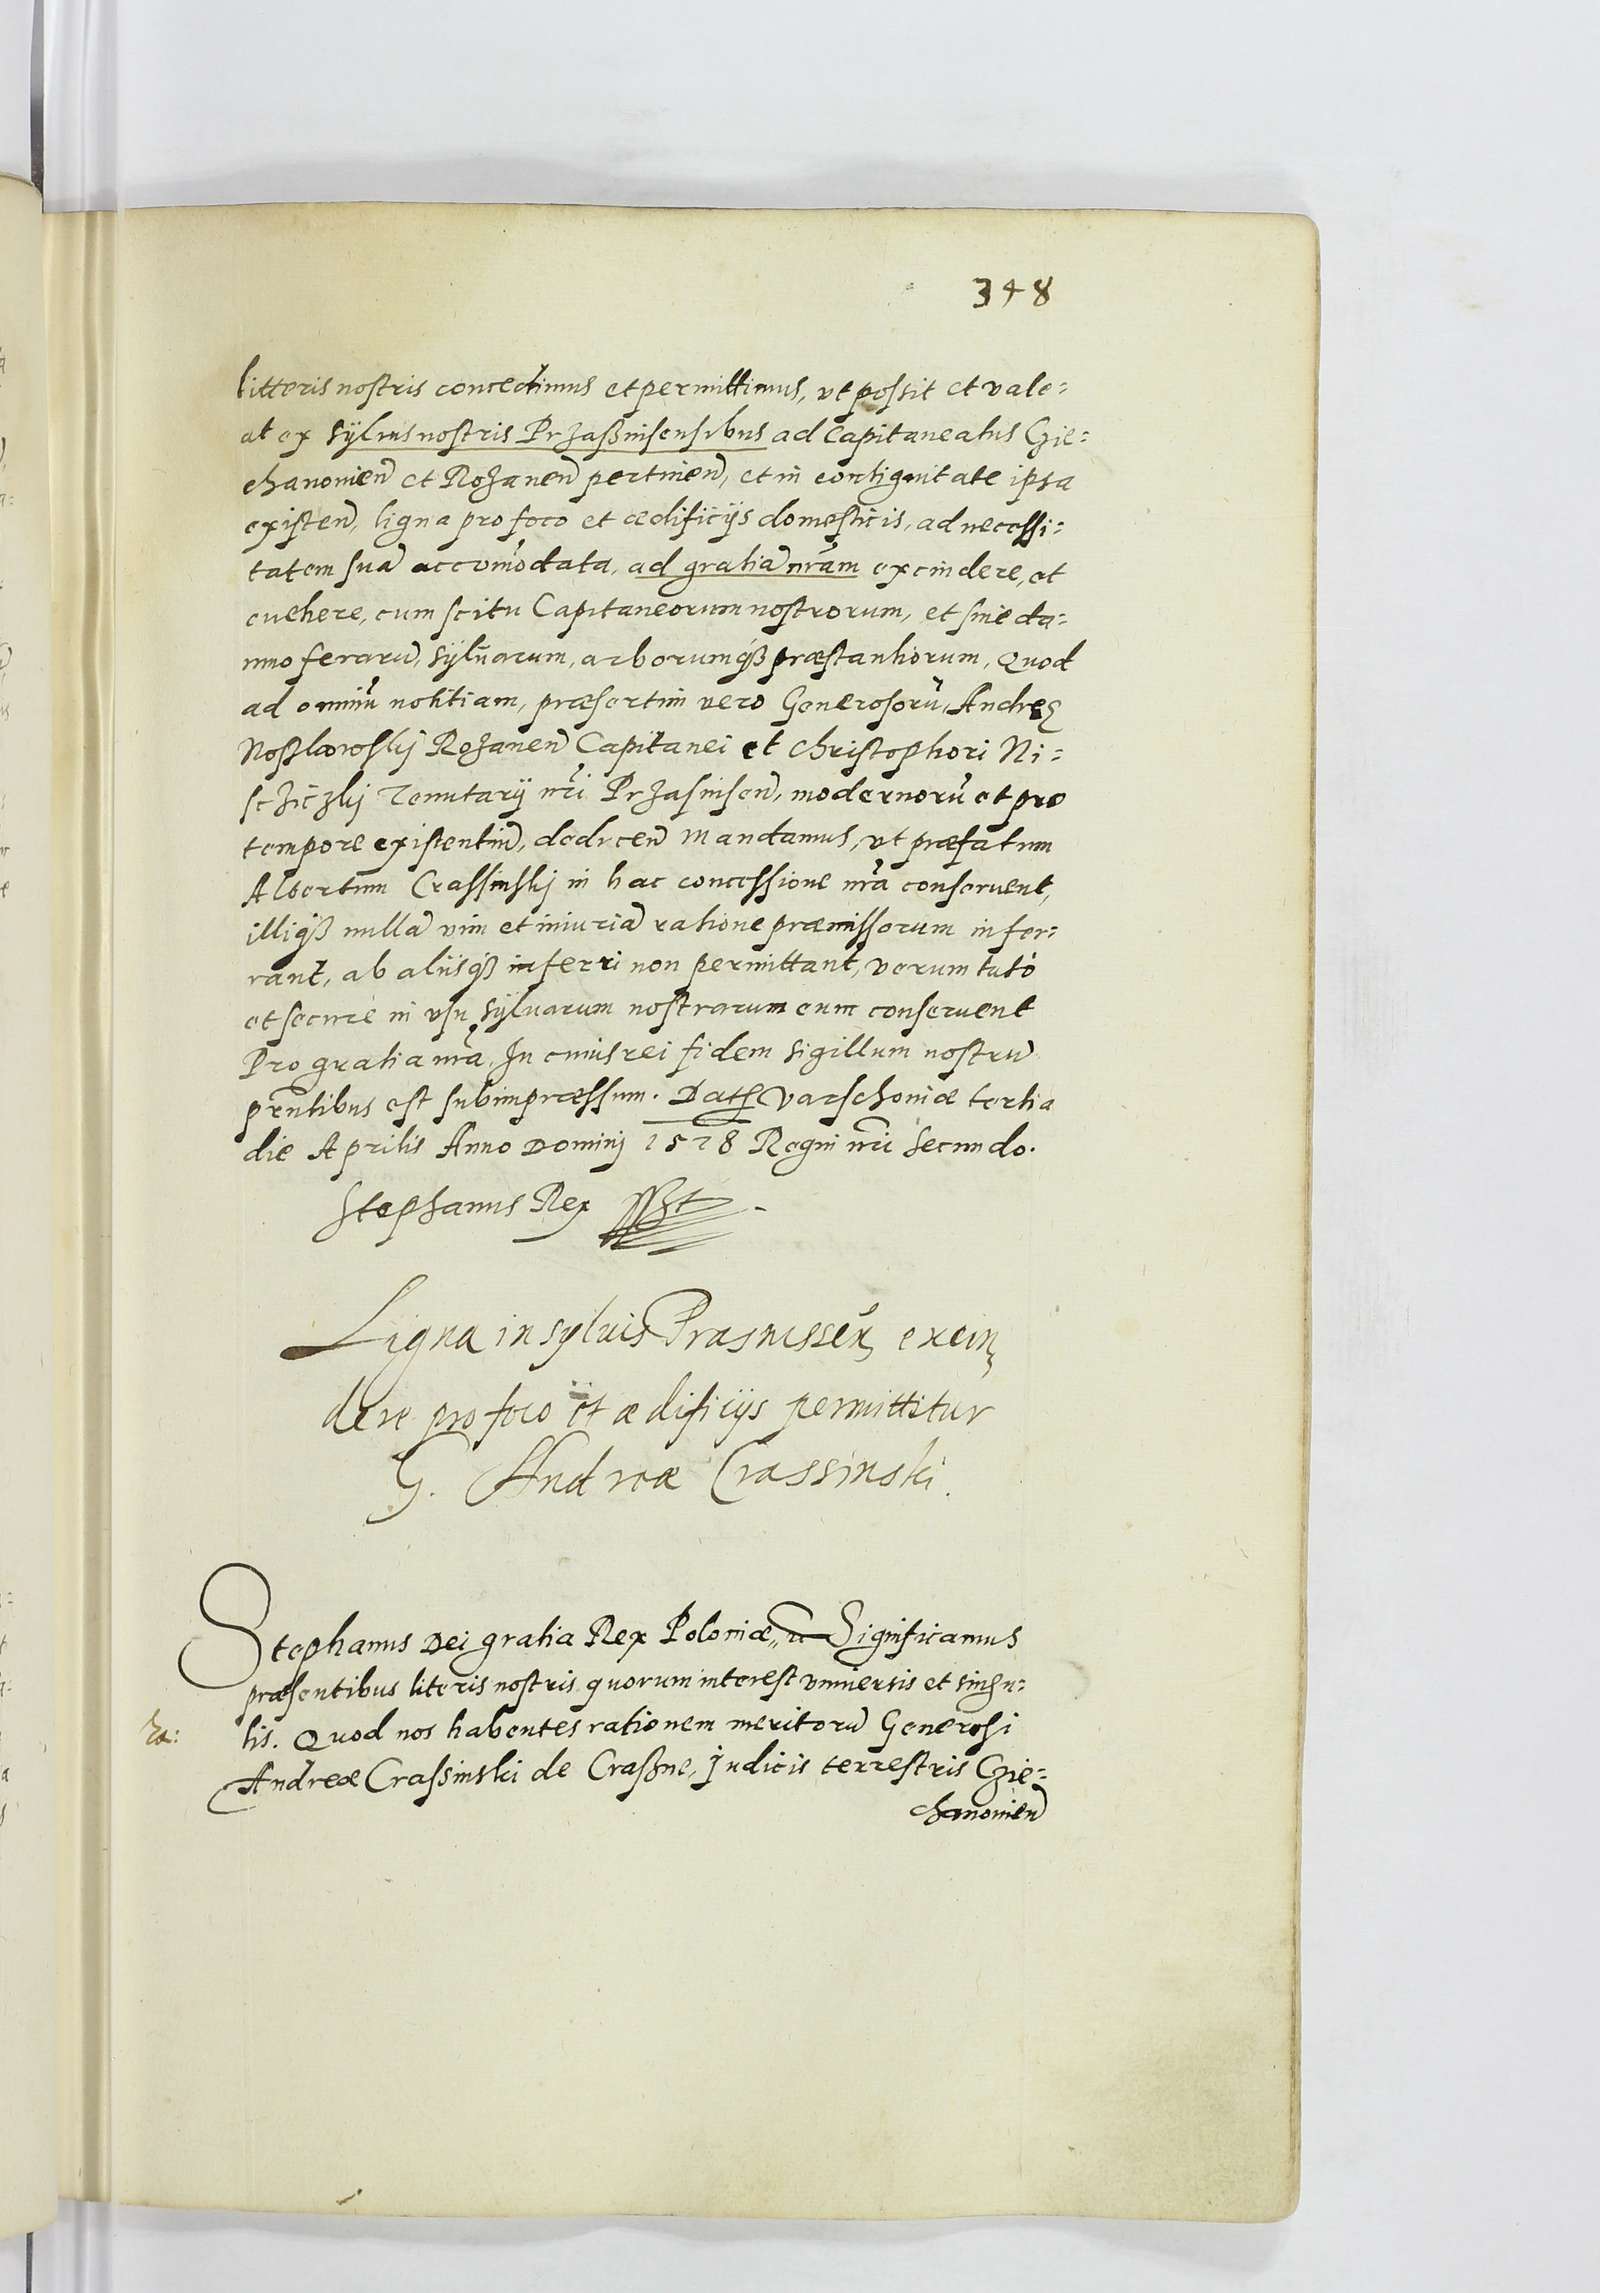 348
litteris nostris concedimus et permittimus, vt possit et vale=
at ex syluis nostris Przaßnisensibus ad Capitaneatus Czie=
chanouien̄ et Rozanen̄ pertinen̄, et in contiguitate ipsa
existen̄, ligna pro foco et ædificijs domesticis, ad necessi=
tatem suā accom̄odata, ad gratiā nr̄am excindere, et
euehere, cum scitu Capitaneorum nostrorum, et sine da=
mno ferarū, syluarum, arborumqß præstantiorum, Quod
ad omniū notitiam, præsertim vero Generosorū, Andreę
Noßkowskij Rozanen̄ Capitanei et Christophori Ni=
scziczkij Tenutarij nr̄i Przasnisen̄, modernorū et pro
tempore existentiū, deducen̄ mandamus, vt præfatum
Albertum Crassinskij in hac concessione nr̄a conseruent,
illiqß nullā vim et iniuriā ratione præmissorum infer=
rant, ab aliisqß inferri non permittant, verum tutò
et securè in vsu syluarum nostrarum eum conseruent
Pro gratia nr̄a, In cuius rei fidem sigillum nostrū
pr̄ntibus est subimpræssum. Datę Varschouiæ tertia
die Aprilis Anno Dominj 1578 Regni nr̄i Secundo.
Stephanus Rex
Ligna in syluis Prasnissen̄ excin
dere pro foco et ædificijs permittitur
G. Andreæ Crassinski.
Stephanus Dei gratia Rex Poloniæ, Significamus
præsentibus literis nostris quorum interest vniuersis et singu=
lis. Quod nos habentes rationem meritorū Generosi
Andreæ Crassinski de Craßne, Judicis terrestris Czie=
chanouien̄